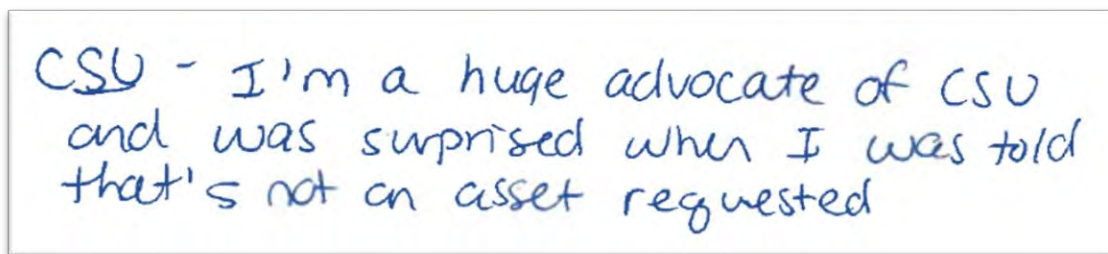 CSU - I'm a huge advocate of CSU
and was surprised when I was told
that's not an asset requested